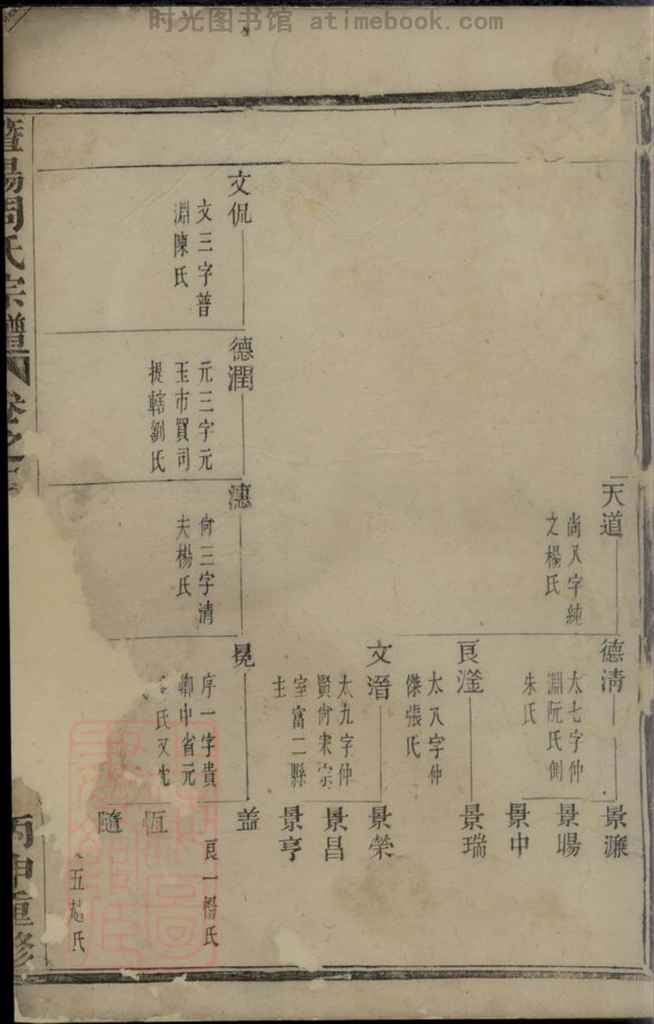 时光图书馆 atimebook.com
天道
尚八字純
之楊氏
德清
太七字仲
淵阮氏側
朱氏
景濂
景暘
景中
良滏
太八字仲
傑張氏
景瑞
文溍
太九字仲
賢尚宋宗
室富二縣
主
景榮
景昌
景亨
文侃
文三字普
淵陳氏
德潤
元三字元
玉市買司
提轄劉氏
潓
何三字清
夫楊氏
晃
序一字貴
卿中省元
氏又沈
盖
良一楊氏
恆
隨
五趙氏
暨陽周氏宗譜
卷之
丙申重修